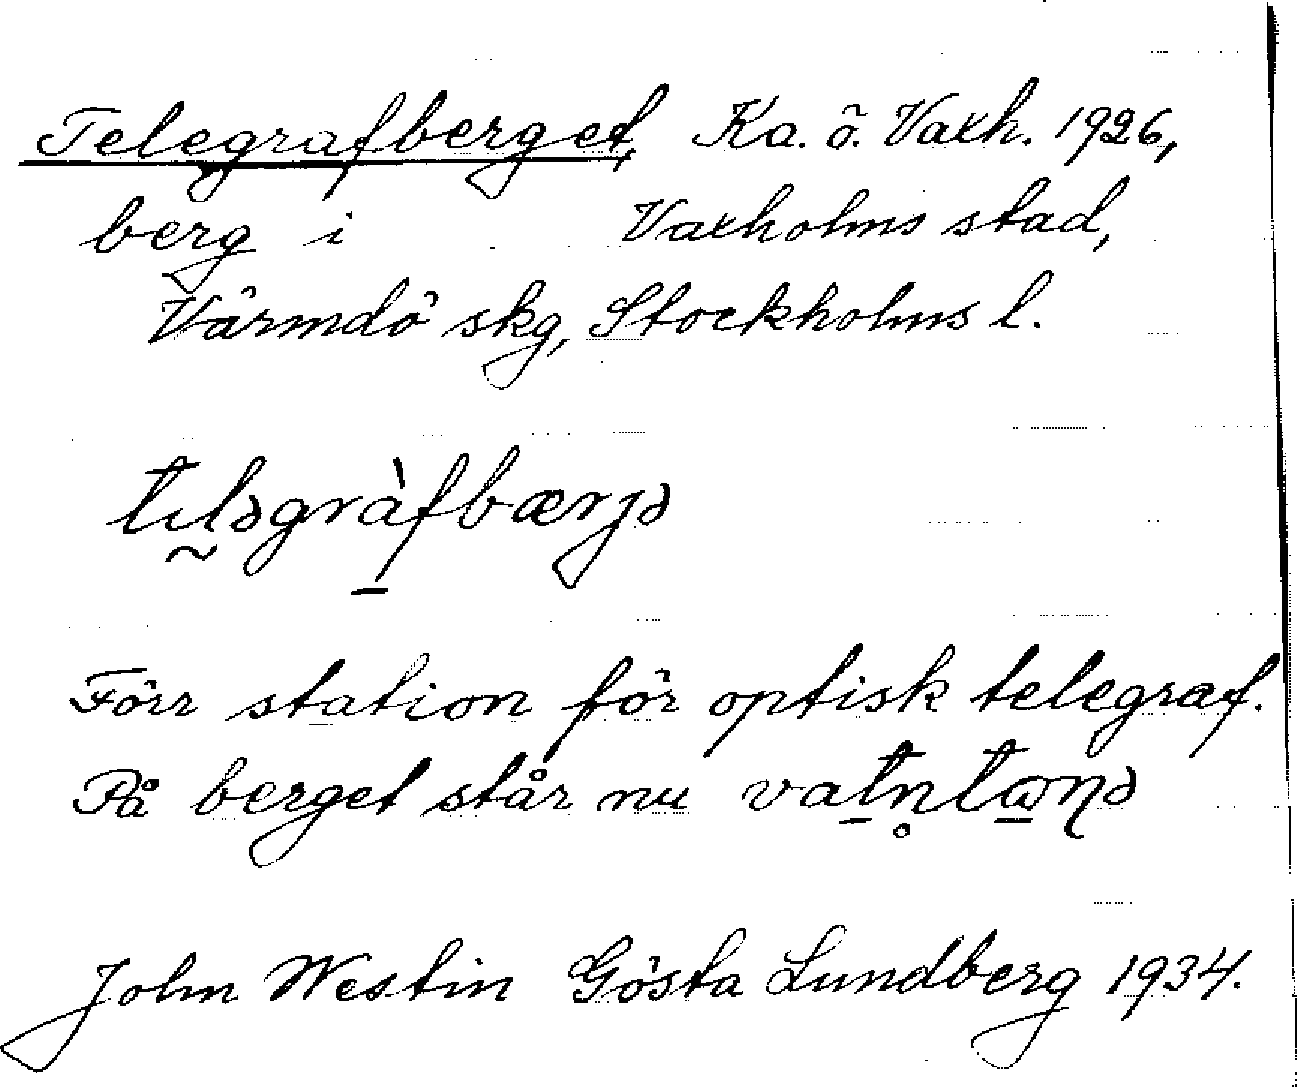 Telegrafberget, Ka. ö. Vaxh. 1926,
berg i Vaxholms stad,
Värmdö skg, Stockholms l.
tɩləgràfbærjə
Förr station för optisk telegraf.
På berget står nu
John Westin Gösta Lundberg 1934.